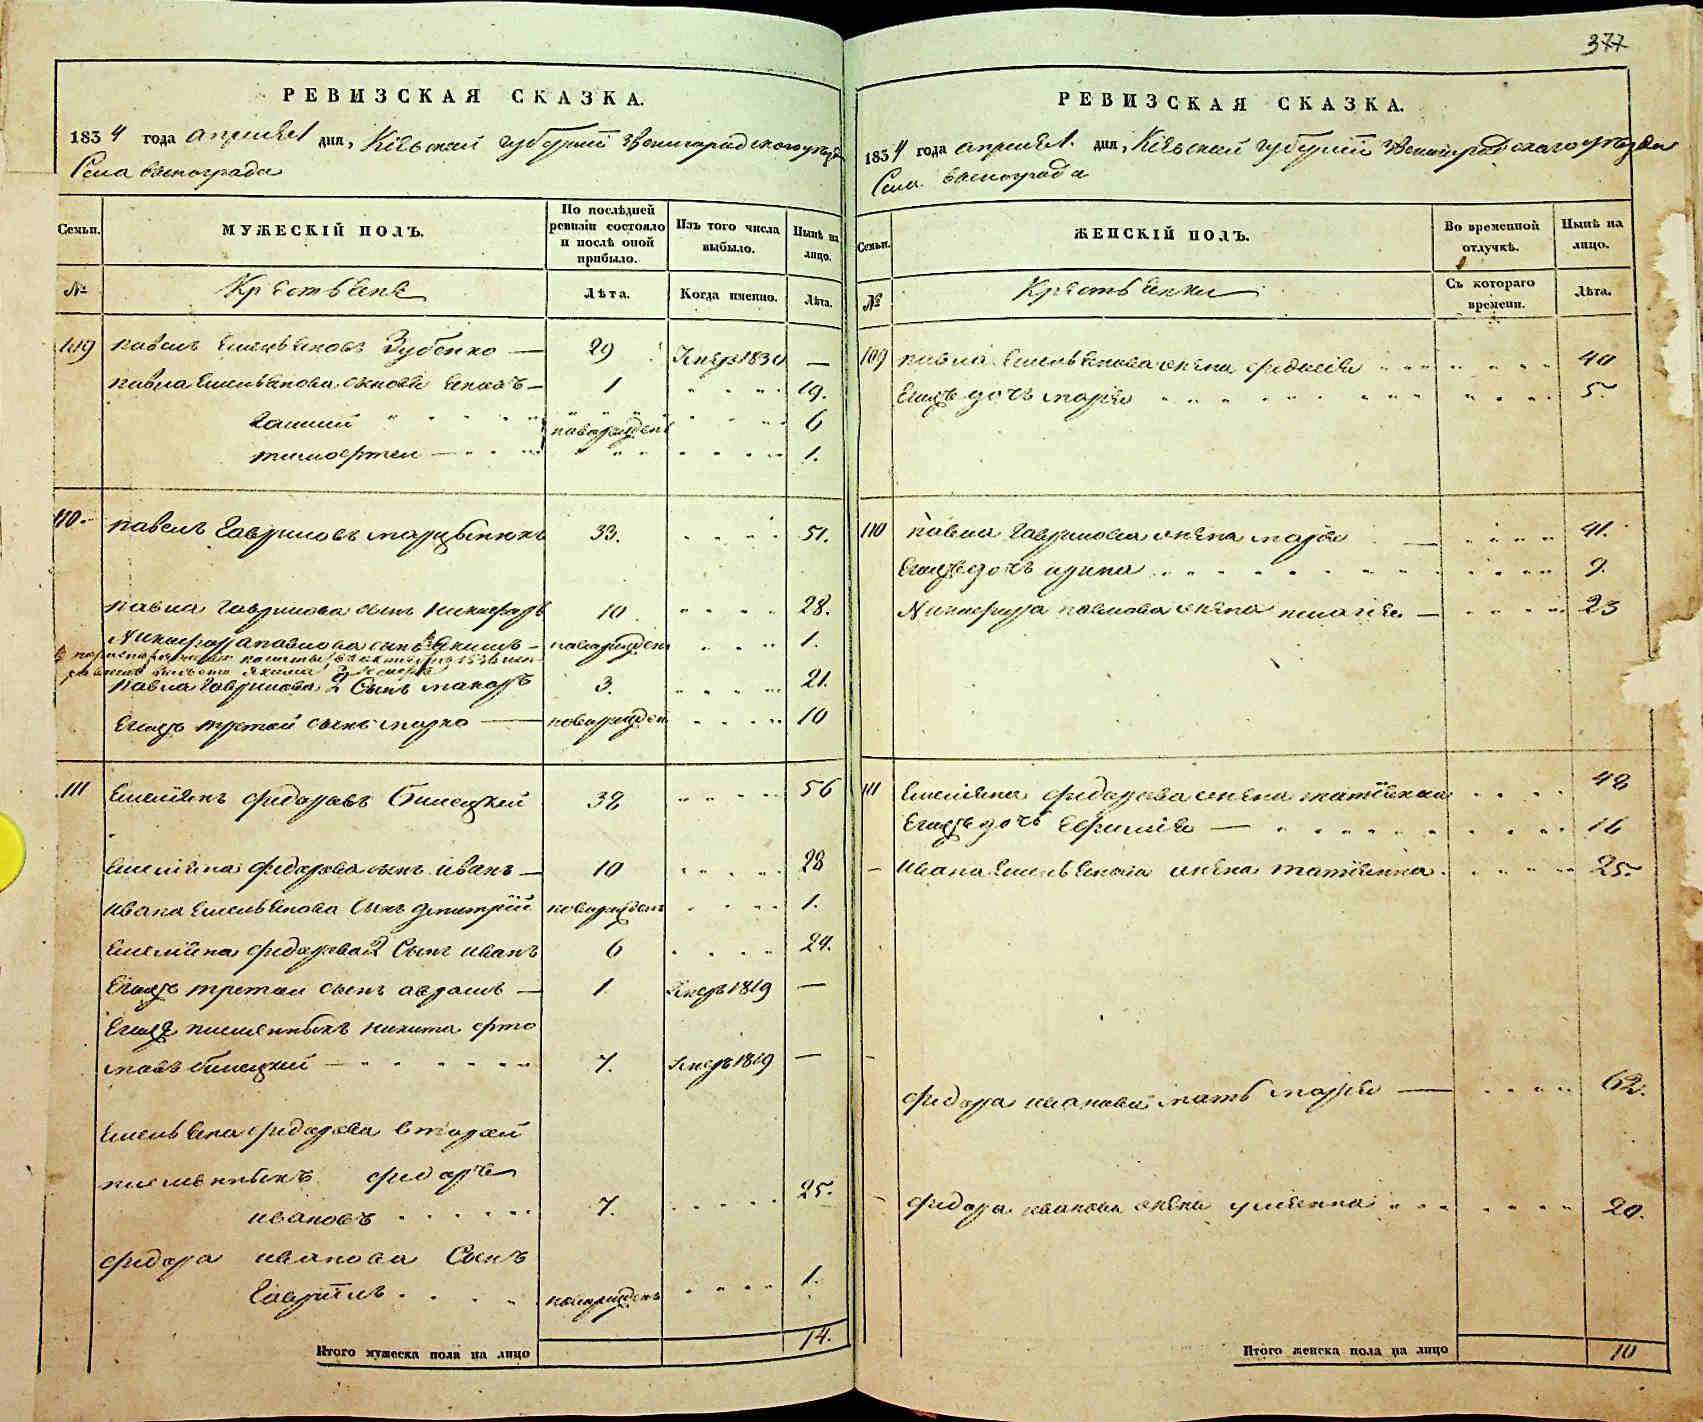 377
РЕВИЗСКАЯ СКАЗКА.
1834 года апреля 1 дня, Кіевской губерніи Звенигородскаго уезда
Села винограда
Семьи. МУЖЕСКІЙ ПОЛЪ. По послѣдней ревизіи состояло и послѣ оной прибыло. Изъ того числа выбыло. Нынѣ на лицо.
№ Крестьяне Лѣта. Когда именно. Лѣта.
109 павелъ Емельяновъ Зубенко — 29 1830 —
павла Емельянова сынове — 1 19.
6
тимофтей — 1.
110. павелъ Гавриловъ 33. 51.
павла Гаврилова сынъ никифоръ 10 28.
Никифора павлова сынъ новорожденъ 1.
павла Гаврилова 2 сынъ макаръ 3. 21.
Егожъ третий сынъ марко — новорожден 10
111 Емелиянъ федоровъ билецкий 38 56
Емелияна федорова сынъ иванъ — 10 28
ивана Емельянова сынъ дмитрий новорожденъ 1.
Емелияна федорова 2 сынъ иванъ 6 24.
Егожъ третий сынъ — 1 1819 —
Егожъ племенныкъ никита
билецкий — 7. 1819 —
Емельяна федорова второй
племенныкъ федоръ
ивановъ 7. 25.
федора иванова сынъ
Гаврiилъ новорожденъ 1.
Итого мужеска пола на лицо 14.
РЕВИЗСКАЯ СКАЗКА.
1834 года апреля 1. дня, Кіевской губерніи Звенигородскаго уезда
Села винограда
Семьи. ЖЕНСКІЙ ПОЛЪ. Во временной отлучкѣ. Нынѣ на лицо.
№ Крестьянки Съ котораго времени. Лѣта.
109 павла Емельянова жена федосия 40
Егожъ дочь мария 5.
110 павла Гаврилова жена мария — 41.
Егожъ дочь ирина 9.
Никифора павлова жена пелагия — 23
111 Емелияна федорова жена 48
Егожъ дочь Ефимия — 16
ивана Емельянова жена татиянна 25.
федора иванова мать мария — 62.
федора иванова жена улиянна 20.
Итого женска пола на лицо 10